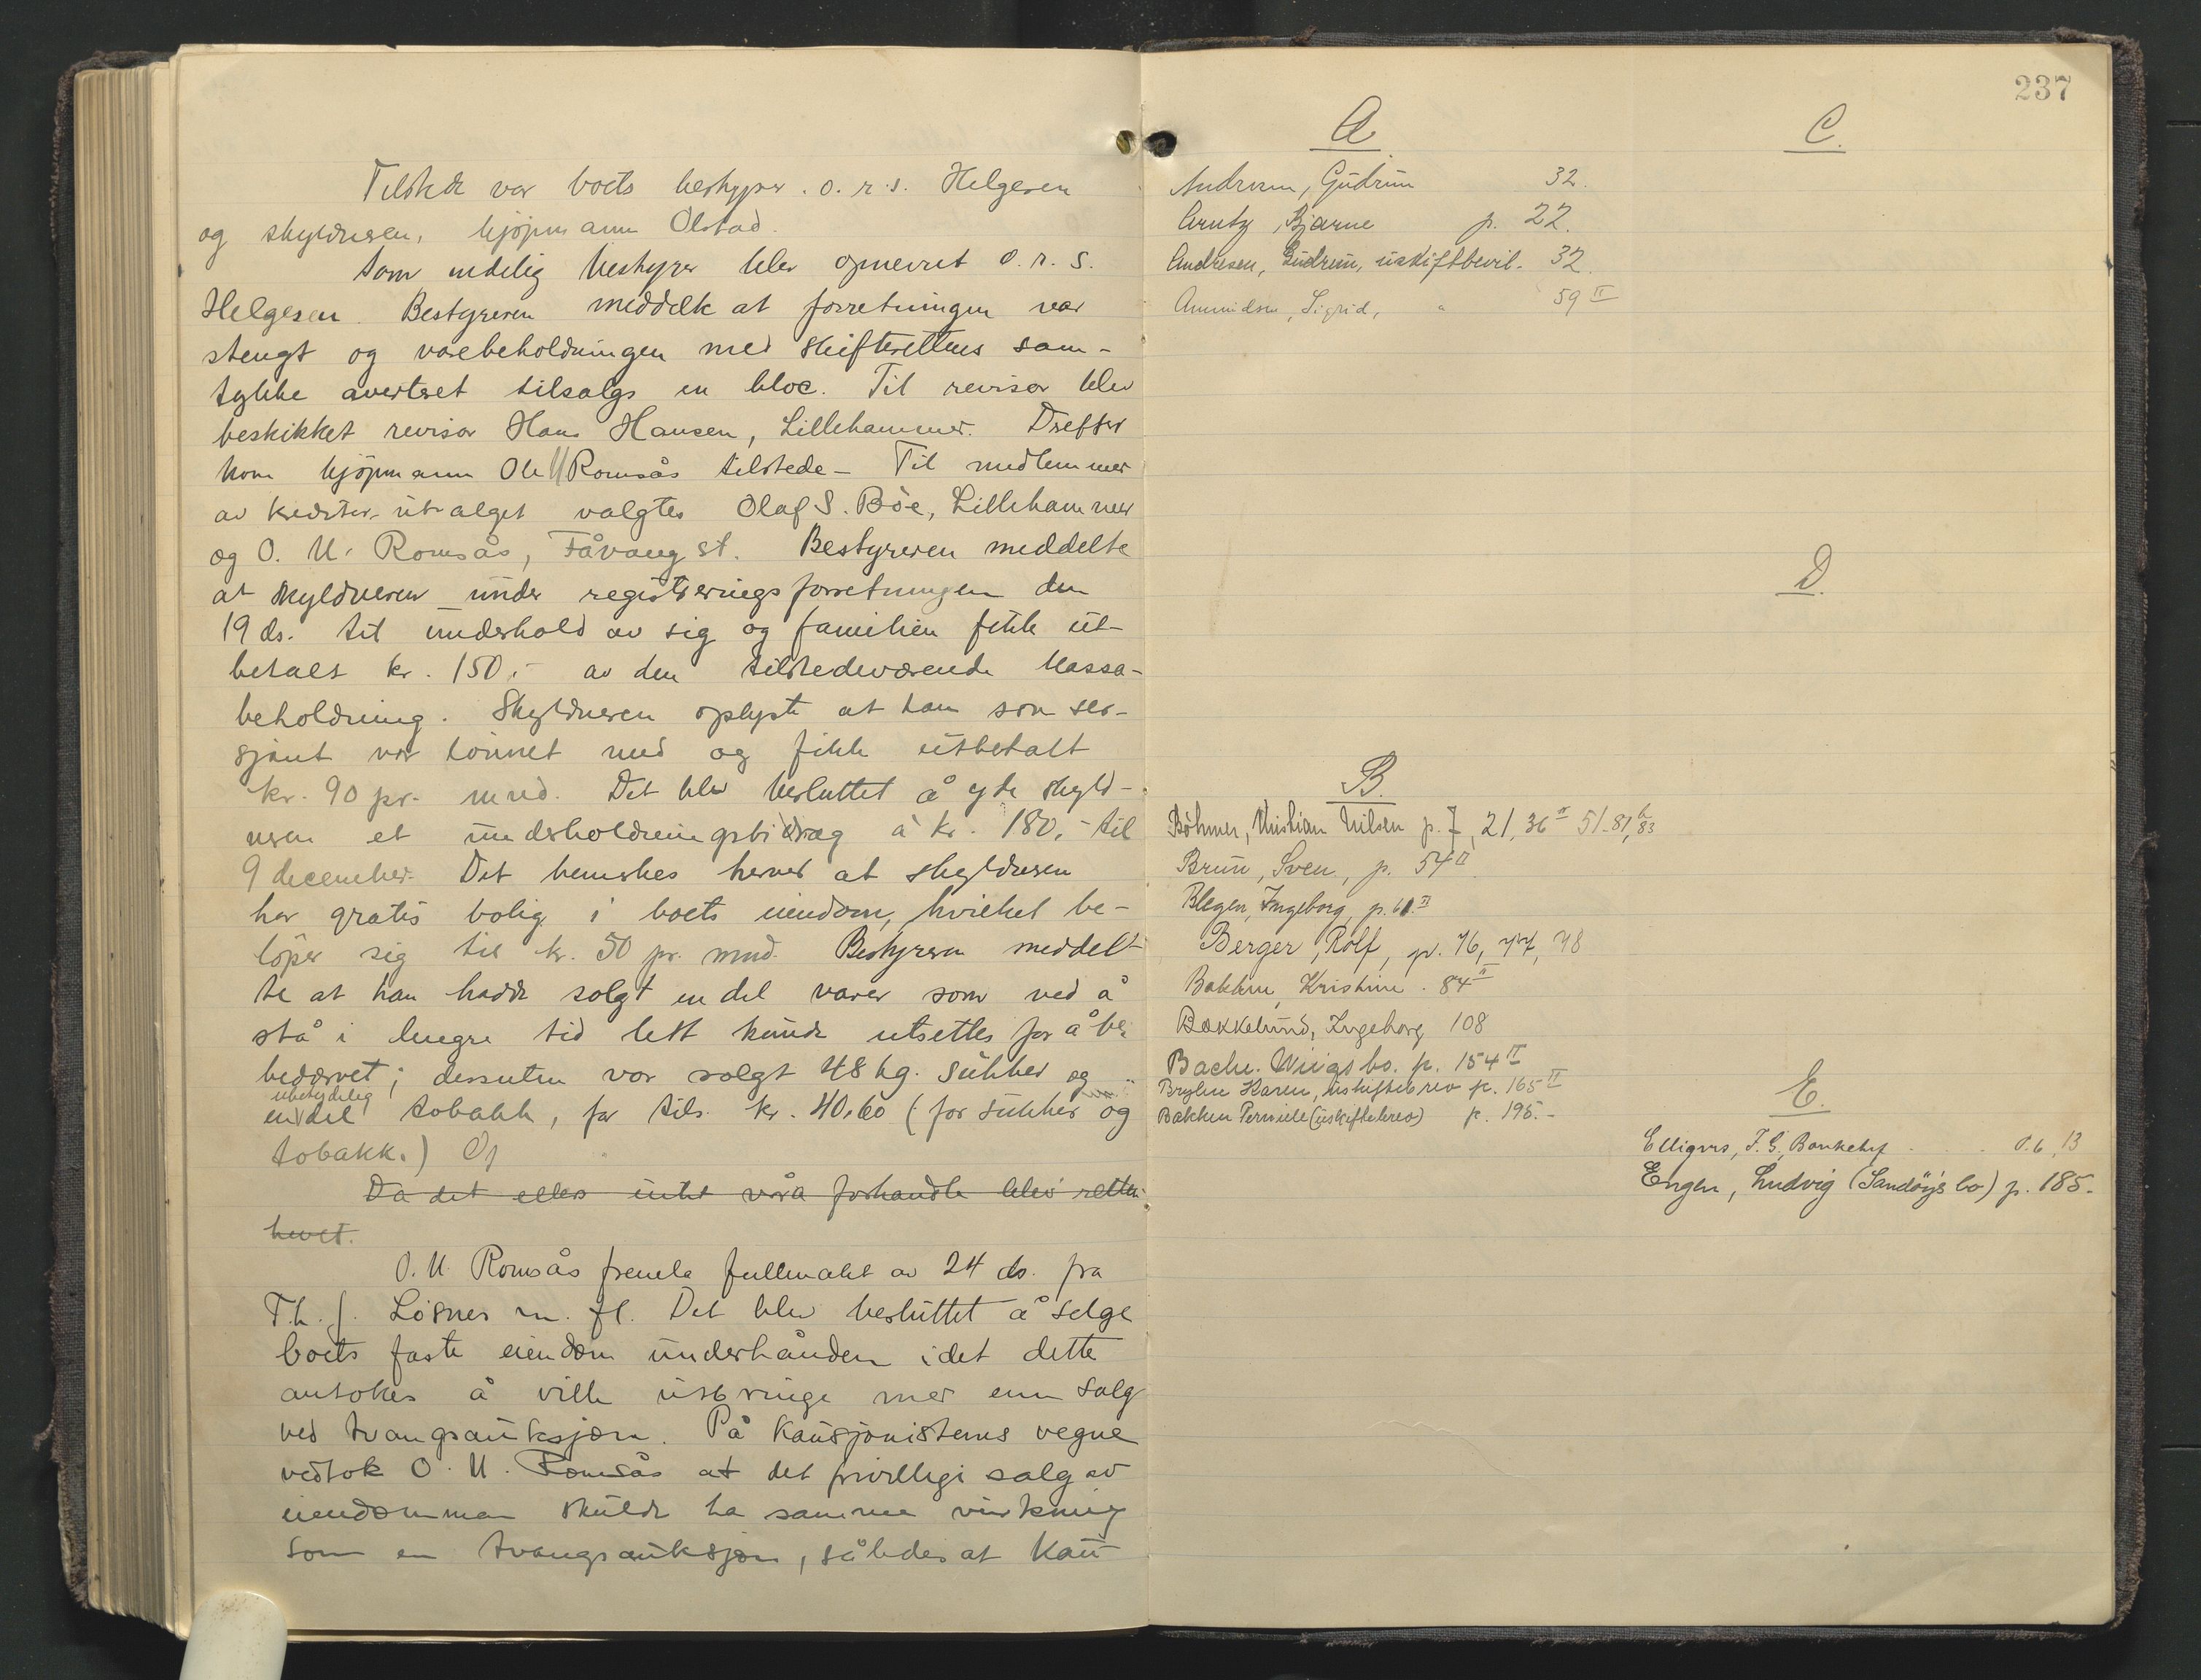 Tilstede var boets bestyrer o.r.s. Helgesen
og skyldneren, kjøpmann Olstad.
Som endelig bestyrer blev opnevnt o.r.s.
Helgesen. Bestyreren meddelte at forretningen var
stengt og varebeholdningen med skifterettens sam-
tykke avertert tilsalgs en bloc. Til revisor blev
beskikket revisor Hans Hansen, Lillehammer. Derefter
kom kjøpmann Ole U Romsås tilstede - Til medlemmer
av kreditor-utvalget valgtes Olaf S. Böe, Lillehammer
og O. U. Romsås, Fåvang st. Bestyreren meddelte
at skyldneren under registreringsforretningen den
19 ds. til underhold av sig og familien fikk ut-
betalt kr. 150,- av den tilstedeværende kassa-
beholdning. Skyldneren oplyste at han som ser-
sjant var lønnet med og fikk utbetalt
kr. 90 pr. mnd. Det blev besluttet å yde skyld-
neren et underholdningsbidrag à kr. 180,- til
9 december. Det bemerkes herved at skyldneren
har gratis bolig i boets eiendom, hvilket be-
löper sig til kr. 50 pr. mnd. Bestyreren meddelt-
te at han hadde solgt en del varer som ved å
stå i lengre tid lett kunde utsettes for å be-
bedervet; dessuten var solgt 48 kg. sukker og
ubetydelig
en del tobakk, for tils. kr. 40,60 (for sukker og
tobakk.) Og
Da det ellers intet var å forhandle blev retten
hevet.
O. U. Romsås fremla fullmakt av 24 ds. fra
Th. J. Lösnes m. fl. Det blev besluttet å selge
boets faste eiendom underhånden idet dette
antokes å ville utbringe mer enn salg
ved tvangsauksjon. På kausjonistenes vegne
vedtok O. U. Romsås at det frivillige salg av
eiendommen skulde ha samme virkning
som en tvangsauksjon, således at kau-
237
A
Andresen, Gudrun 32.
Arntz, Bjarne p. 22.
Andresen, Gudrun, uskiftbevil. 32.
Amundsen, Sigrid, " 59 II
B.
Böhmer, Kristian Nilsen p. 7, 21, 36 II 51-81, 83
Brun, Sven, p. 54 II
Blegen, Ingeborg, p. 61. II
Berger, Rolf, p. 76, 77, 78
Bakken, Kristine. 84 II
Bakkelund, Ingeborg 108
Bache-Wiigs bo. p. 154 II
Brylen Karen, uskiftebrev p. 165 II
Bakken Pernille (uskiftebrev) p. 195.-
C.
D.
E.
Elligers, F. G., Bankchef p. 6, 13
Engen, Ludvig (Sandöy's bo) p. 185.